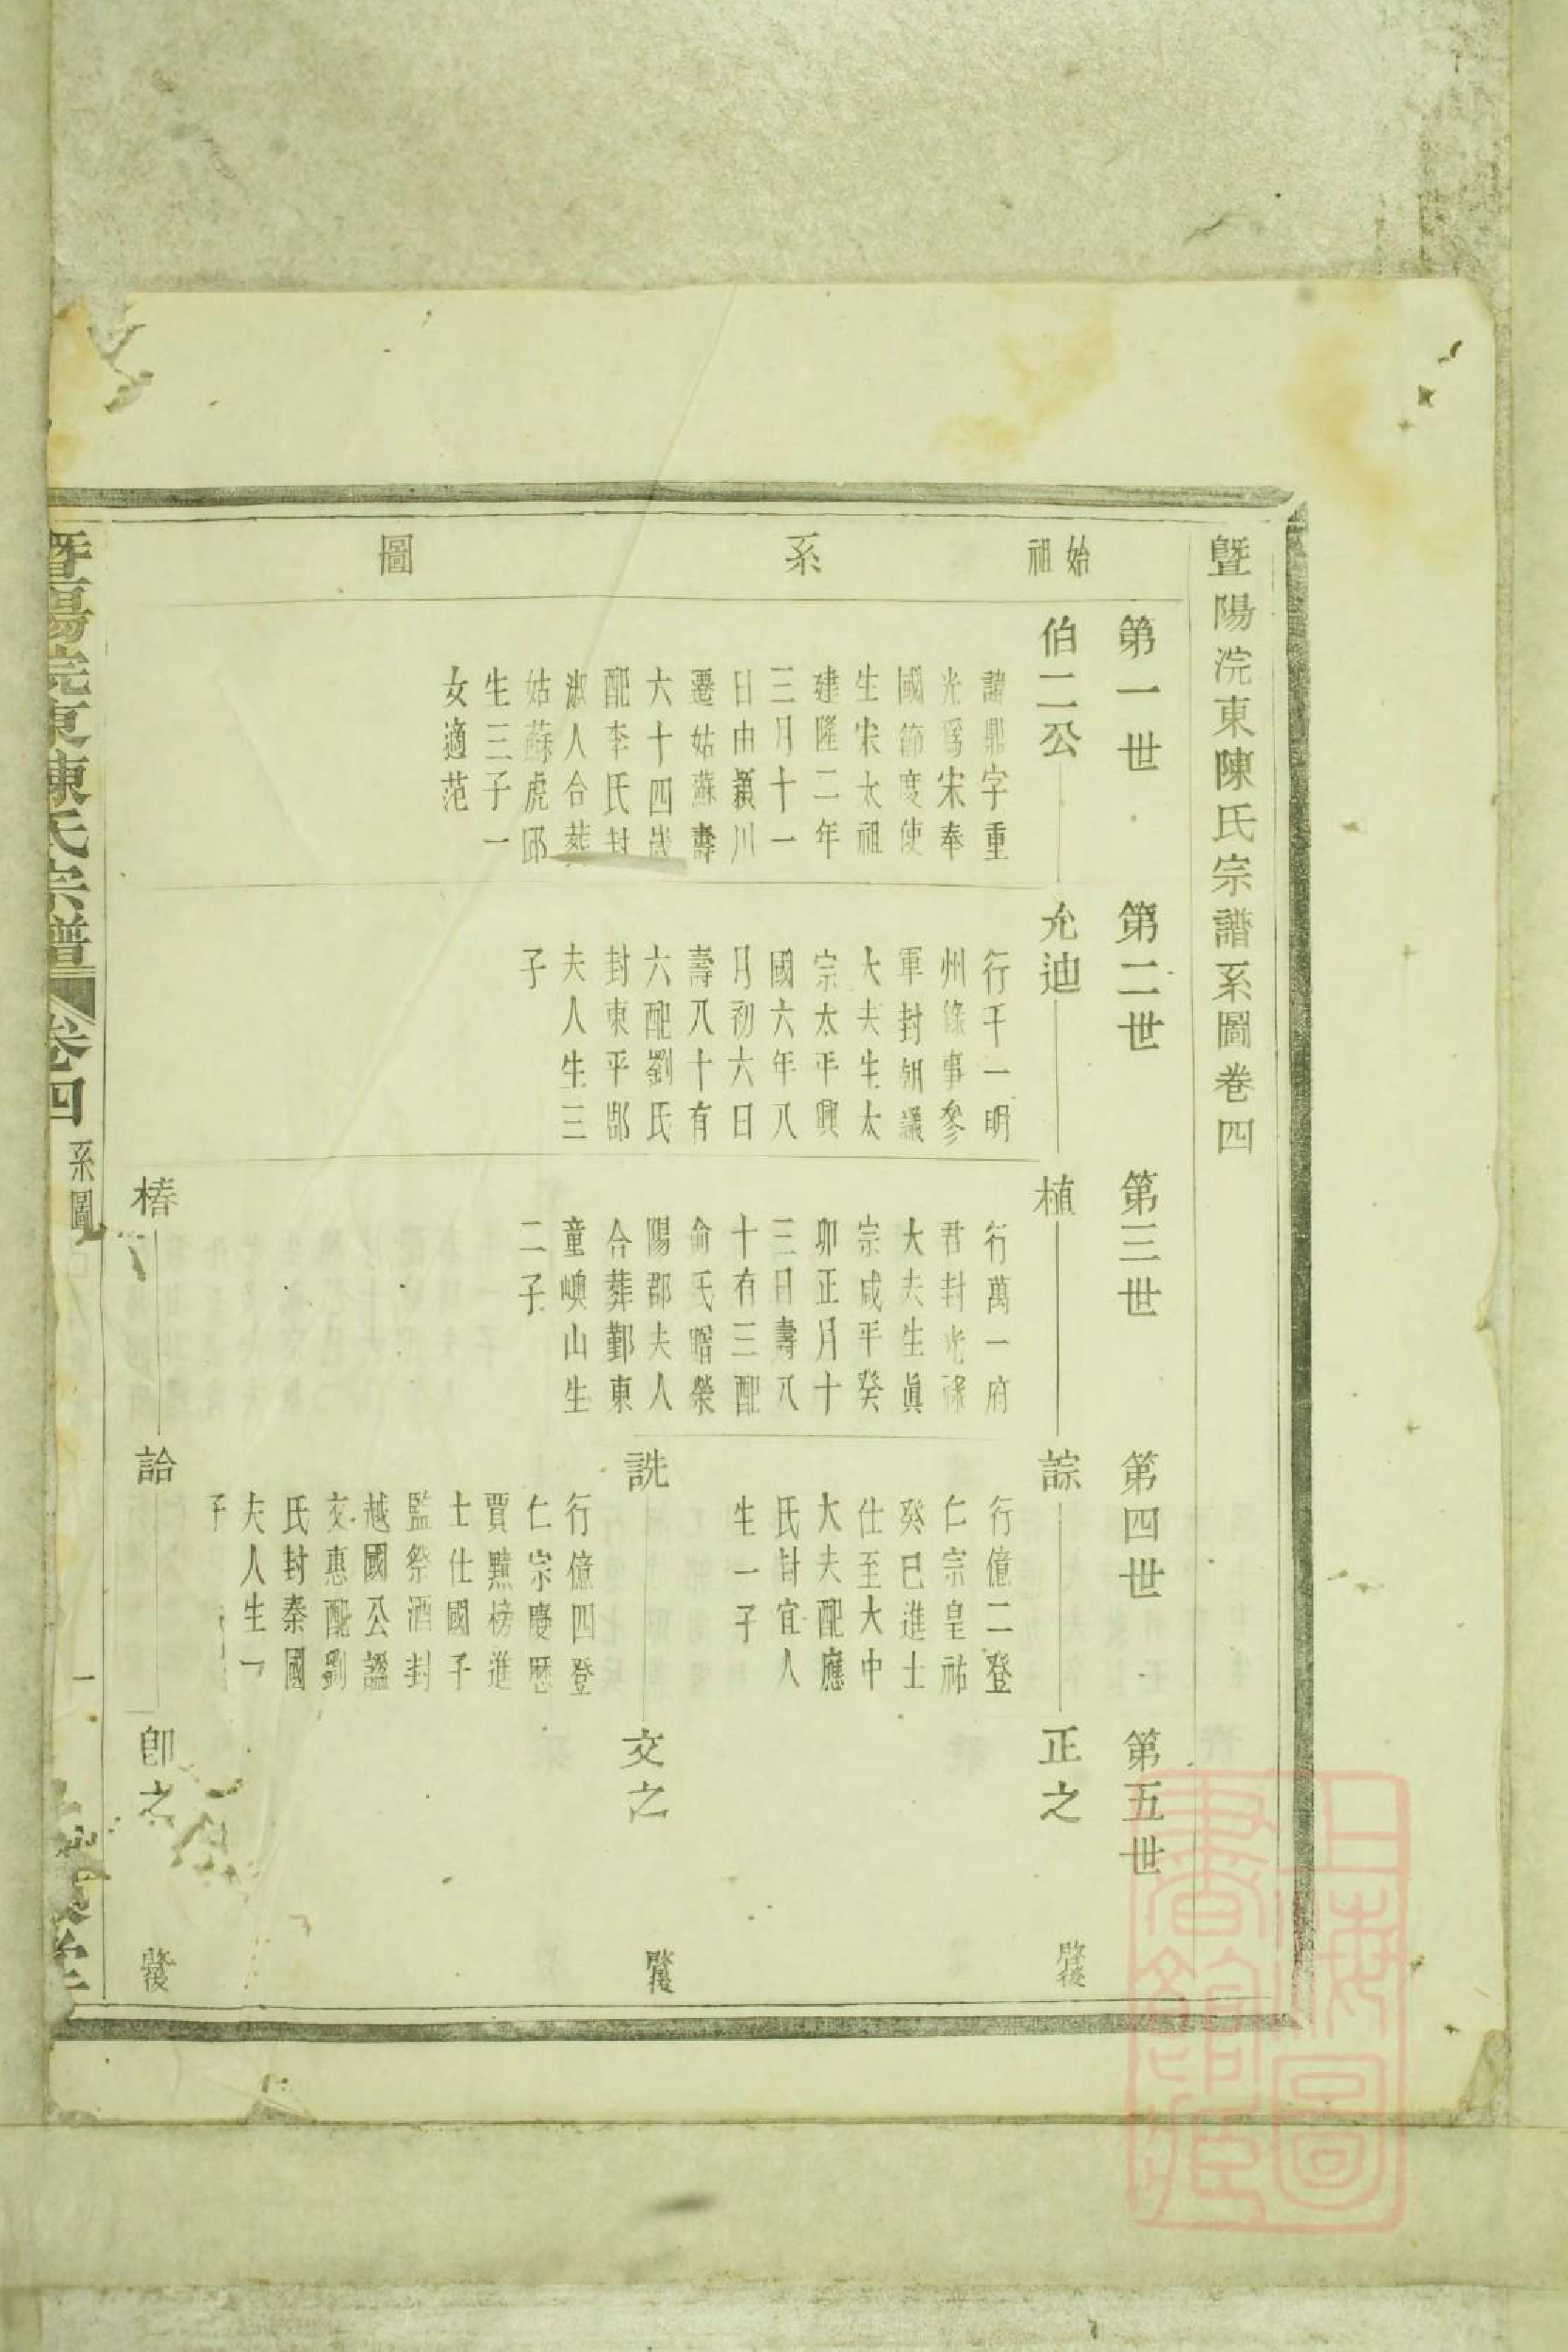 暨陽浣東陳氏宗譜系圖卷四
始祖
系
圖
第一世
第二世
第三世
第四世
第五世
伯二公
諱鼎字重
光爲宋奉
國節度使
生宋太祖
建隆二年
三月十一
日由潁川
遷姑蘇壽
六十四歲
配李氏封
淑人合葬
姑蘇虎邱
生三子一
女適范
允迪
行千一明
州錄事參
軍封朝議
大夫生太
宗太平興
國六年八
月初六日
壽八十有
六配劉氏
封東平郡
夫人生三
子
植
行萬一府
君封光祿
大夫生眞
宗咸平癸
卯正月十
三日壽八
十有三配
俞氏贈榮
陽郡夫人
合葬鄞東
童嶴山生
二子
諒
行億二登
仁宗皇祐
癸巳進士
仕至大中
大夫配應
氏封宜人
生一子
正之
啓後
詵
行億四登
仁宗慶歷
賈黯榜進
士仕國子
監祭酒封
越國公謚
文惠配劉
氏封秦國
夫人生一
子
交之
啓後
椿
詥
卽之
啓後
暨陽浣東陳氏宗譜
卷四
系圖
一
上海圖書館藏